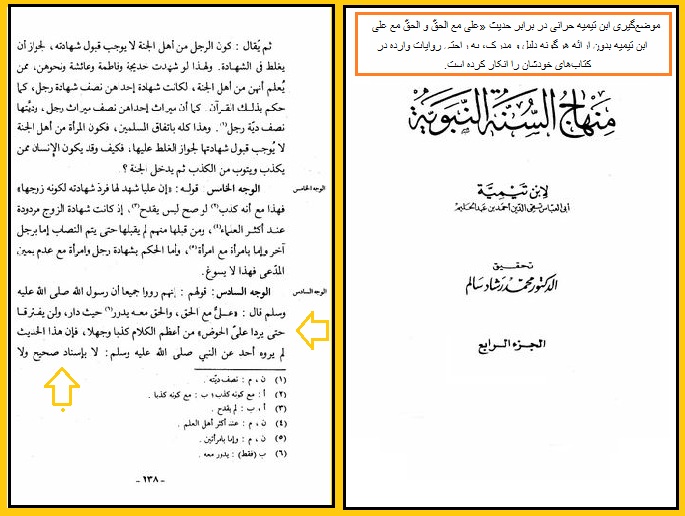 موضع‌گیری ابن تیمیه حرانی در برابر حدیث «علی مع الحقّ و الحقّ مع علی
ابن تیمیه بدون ارائه هرگونه دلیل و مدرک، به راحتی روایات وارده در
کتاب‌های خودشان را انکار کرده است.
منهاج السنة النبوية
لابن تيمية
أبي العباس تقي الدين أحمد بن عبد الحليم
تحقيق
الدكتور محمد رشاد سالم
الجزء الرابع
ثم يُقال : كون الرجل من أهل الجنة لا يوجب قبول شهادته، لجواز أن
يغلط في الشهادة. ولهذا لو شهدت خديجة وفاطمة وعائشة ونحوهن، ممن
يُعلم أنهن من أهل الجنة، لكانت شهادة إحداهن نصف شهادة رجل، كما
حكم بذلك القرآن. كما أن ميراث إحداهن نصف ميراث رجل، وديّتها
نصف ديّة رجل(١). وهذا كله باتفاق المسلمين، فكون المرأة من أهل الجنة
لا يُوجب قبول شهادتها لجواز الغلط عليها، فكيف وقد يكون الإنسان ممن
يكذب ويتوب من الكذب ثم يدخل الجنة ؟
الوجه الخامس
الوجه الخامس قوله: «إن عليا شهد لها فردّ شهادته لكونه زوجها»
فهذا مع أنه كذب(٢) لو صح ليس يقدح(٣)، إذ كانت شهادة الزوج مردودة
عند أكثر العلماء(٤)، ومن قبلها منهم لم يقبلها حتى يتم النصاب إما برجل
آخر وإما بامرأة مع امرأة(٥)، وأما الحكم بشهادة رجل وامرأة مع عدم يمين
المدّعى فهذا لا يسوغ.
الوجه السادس
الوجه السادس: قولهم : إنهم رووا جميعا أن رسول الله صلى الله عليه
وسلم قال : «عليٌّ مع الحق، والحق معه يدور(٦) حيث دار، ولن يفترقا
حتى يردا عليَّ الحوض» من أعظم الكلام كذبا وجهلا، فإن هذا الحديث
لم يروه أحد عن النبي صلى الله عليه وسلم: لا بإسناد صحيح ولا
(١) ن ، م : نصف ديّته .
(٢) أ : مع كونه كذب؛ ب : مع كونه كذبا .
(٣) أ ، ب : لم يقدح .
(٤) ن ، م : عند أكثر أهل العلم .
(٥) ن ، م : وإما بامرأتين .
(٦) ب (فقط) : يدور معه .
- ١٣٨ -